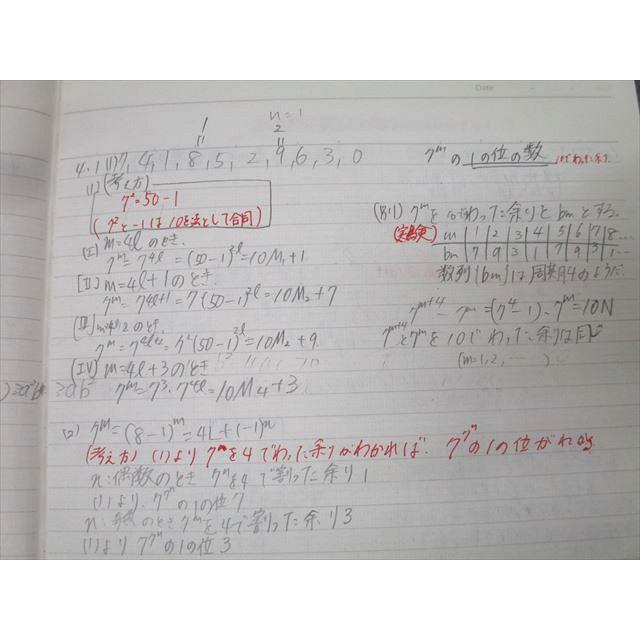 Date
n=1
4.1 (1)7, 4, 1, 8, 5, 2, 9, 6, 3, 0
7^mの1の位の数
(1) (考え方)
7²=50-1
(7²と-1は10を法として合同)
(I) m=4lのとき.
7^m=7^{4l}=(50-1)^{2l}=10M₁+1
[II] m=4l+1のとき.
7^m=7^{4l+1}=7(50-1)^{2l}=10M₂+7
(III) m=4l+2のとき.
7^m=7^{4l+2}=7²(50-1)^{2l}=10M₂+9
(IV) m=4l+3のとき
7^m=7³·7^{4l}=10M₄+3
(別) 7^mを10でわった余りをbmとする.
(実験) m 1 2 3 4 5 6 7 8 ...
bm 7 9 3 1 7 9 3 1 ...
数列{bm}は周期4のようだ.
7^{m+4}-7^m=(7⁴-1)·7^m=10N
7^{m+4}と7^mを10でわった余りは同じ
(m=1,2, ...)
(2) 7^m=(8-1)^m=4L+(-1)^m
(考え方) (1)より 7^nを4でわった余りがわかれば. 7^{7^n}の1の位が
n:偶数のとき 7^nを4で割った余り1
(1)より. 7^{7^n}の1の位7
n:奇数のとき 7^nを4で割った余り3
(1)より 7^{7^n}の1の位3